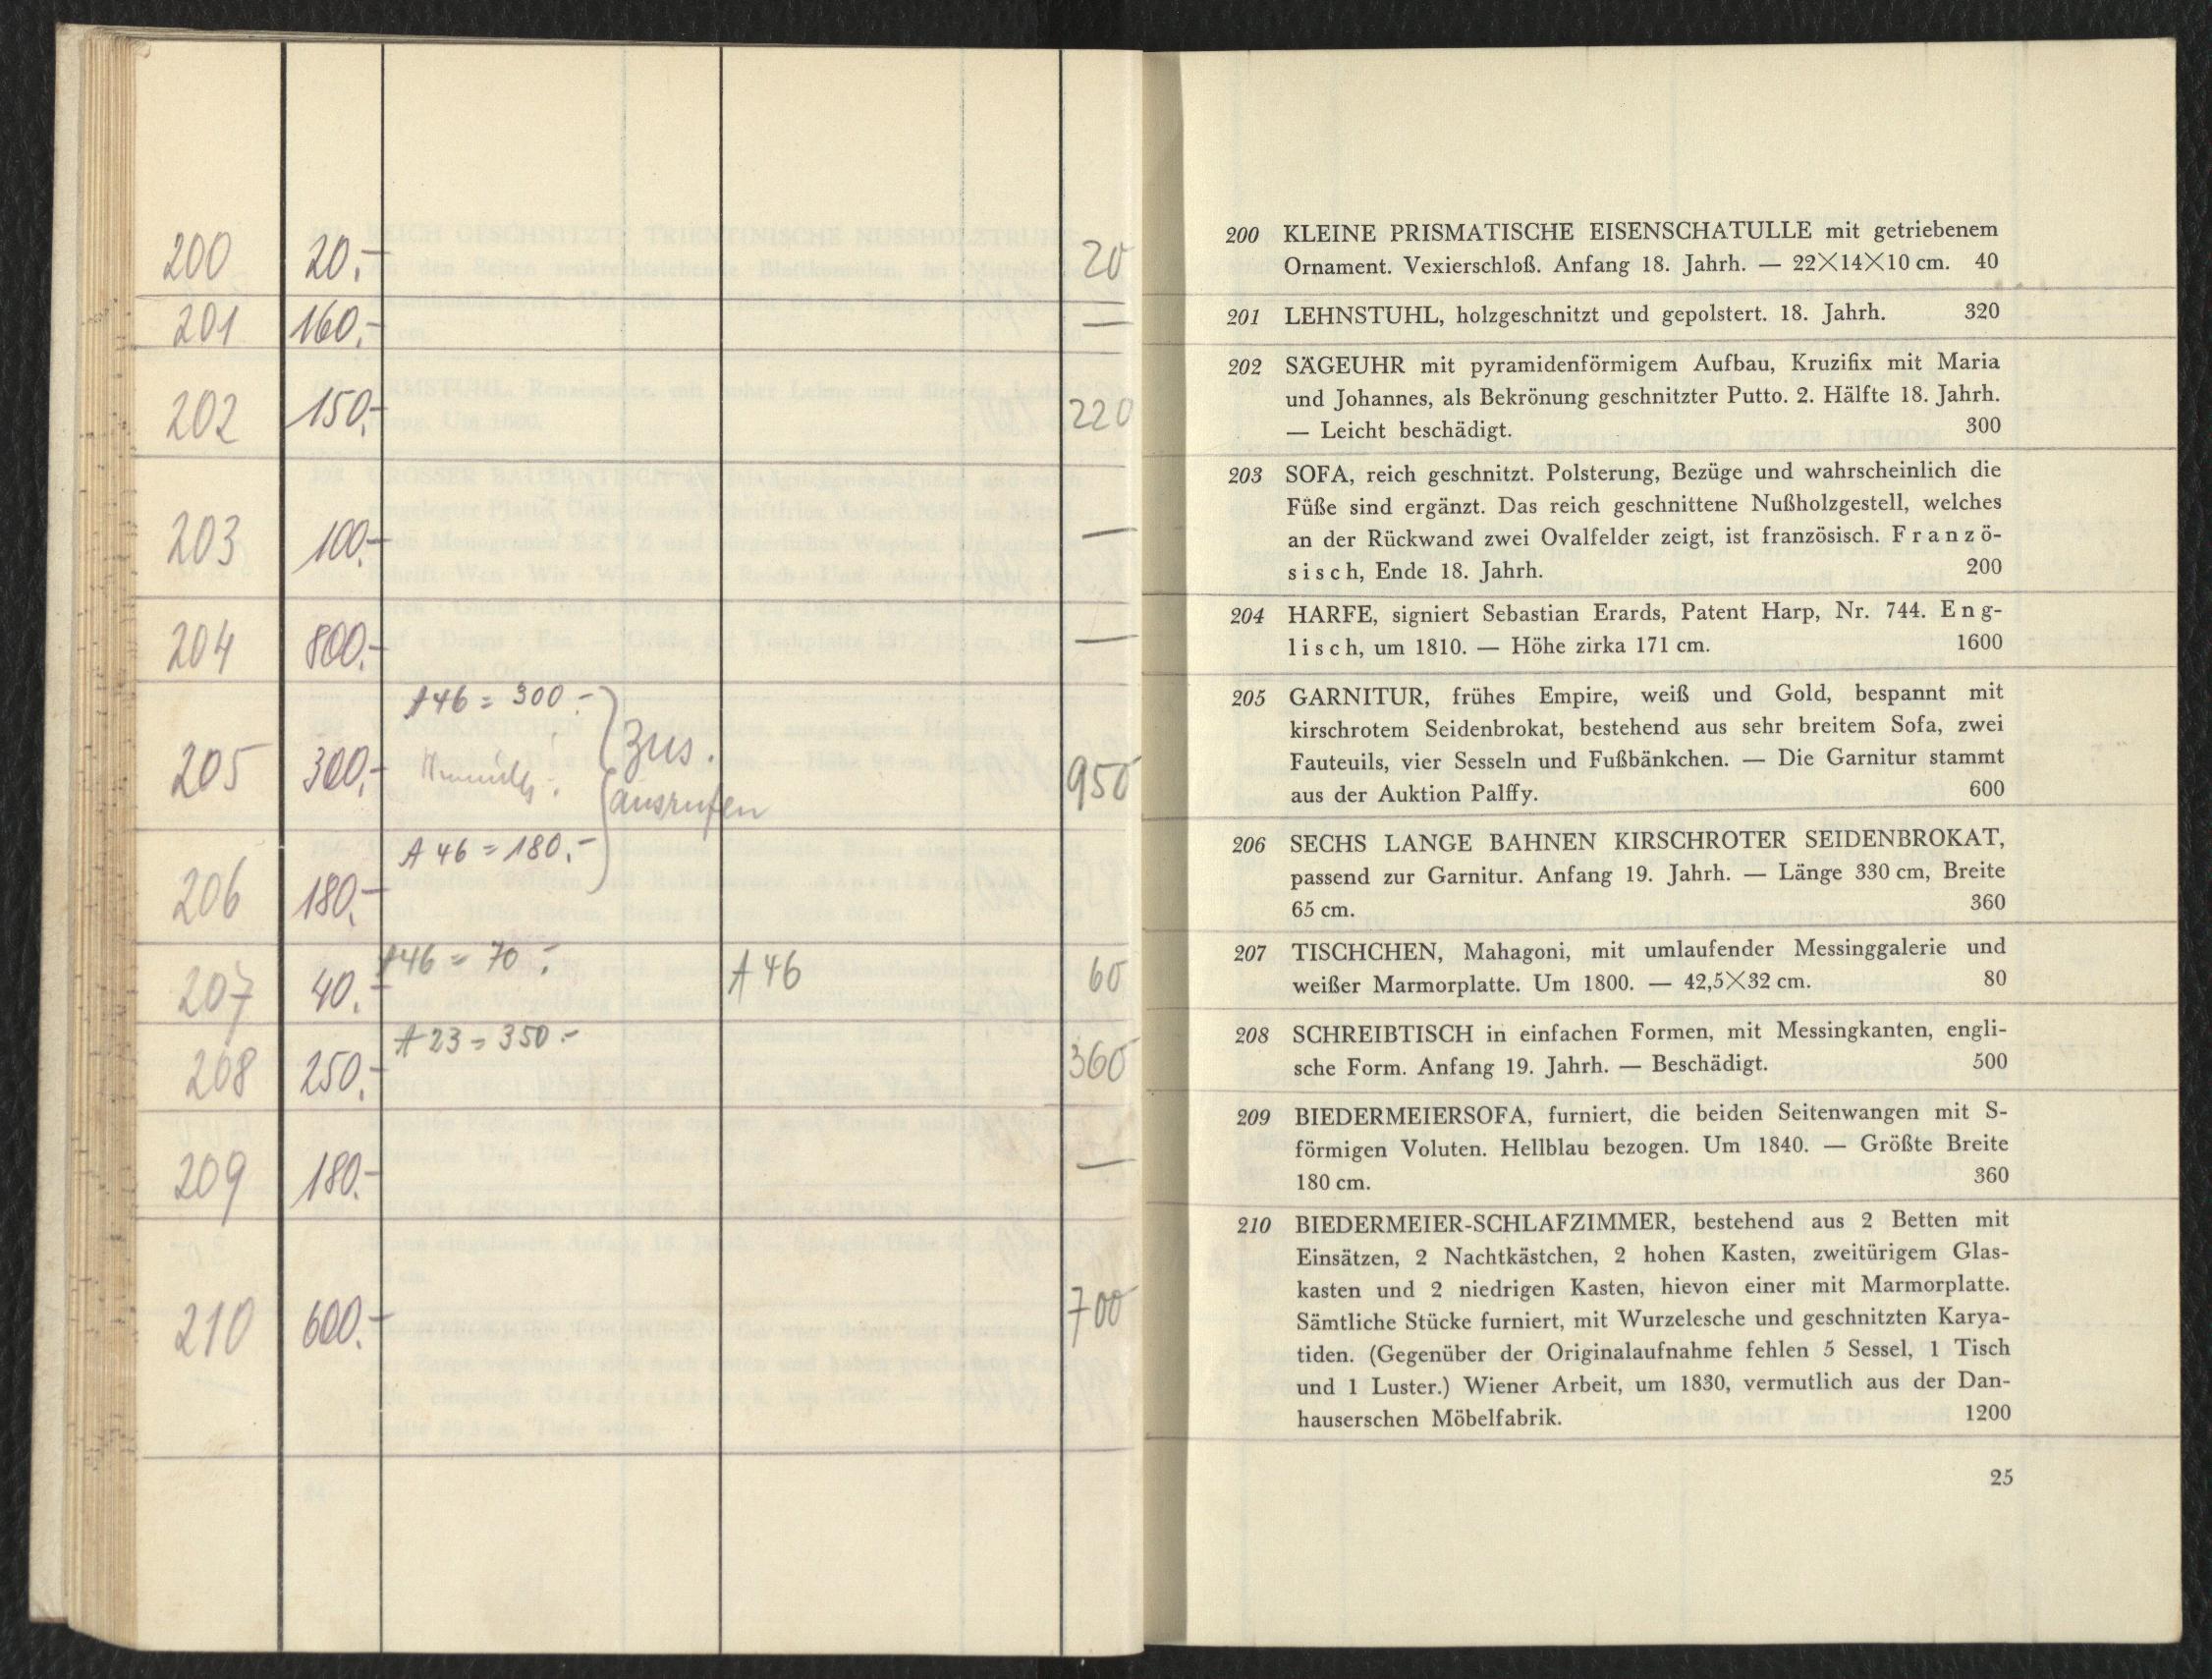 200 20.- 20
201 160.- —
202 150.- 220
203 100.- —
204 800.- —
A46 = 300.-
zus.
205 300.- 950
ausrufen
A 46 = 180.-
206 180.-
A46 = 70.-
207 40.- A 46 60
A 23 = 350.-
208 250.- 360
209 180.- —
210 600.- 700
200 KLEINE PRISMATISCHE EISENSCHATULLE mit getriebenem
Ornament. Vexierschloß. Anfang 18. Jahrh. — 22×14×10 cm. 40
201 LEHNSTUHL, holzgeschnitzt und gepolstert. 18. Jahrh. 320
202 SÄGEUHR mit pyramidenförmigem Aufbau, Kruzifix mit Maria
und Johannes, als Bekrönung geschnitzter Putto. 2. Hälfte 18. Jahrh.
— Leicht beschädigt. 300
203 SOFA, reich geschnitzt. Polsterung, Bezüge und wahrscheinlich die
Füße sind ergänzt. Das reich geschnittene Nußholzgestell, welches
an der Rückwand zwei Ovalfelder zeigt, ist französisch. Franzö-
sisch, Ende 18. Jahrh. 200
204 HARFE, signiert Sebastian Erards, Patent Harp, Nr. 744. Eng-
lisch, um 1810. — Höhe zirka 171 cm. 1600
205 GARNITUR, frühes Empire, weiß und Gold, bespannt mit
kirschrotem Seidenbrokat, bestehend aus sehr breitem Sofa, zwei
Fauteuils, vier Sesseln und Fußbänkchen. — Die Garnitur stammt
aus der Auktion Palffy. 600
206 SECHS LANGE BAHNEN KIRSCHROTER SEIDENBROKAT,
passend zur Garnitur. Anfang 19. Jahrh. — Länge 330 cm, Breite
65 cm. 360
207 TISCHCHEN, Mahagoni, mit umlaufender Messinggalerie und
weißer Marmorplatte. Um 1800. — 42,5×32 cm. 80
208 SCHREIBTISCH in einfachen Formen, mit Messingkanten, engli-
sche Form. Anfang 19. Jahrh. — Beschädigt. 500
209 BIEDERMEIERSOFA, furniert, die beiden Seitenwangen mit S-
förmigen Voluten. Hellblau bezogen. Um 1840. — Größte Breite
180 cm. 360
210 BIEDERMEIER-SCHLAFZIMMER, bestehend aus 2 Betten mit
Einsätzen, 2 Nachtkästchen, 2 hohen Kasten, zweitürigem Glas-
kasten und 2 niedrigen Kasten, hievon einer mit Marmorplatte.
Sämtliche Stücke furniert, mit Wurzelesche und geschnitzten Karya-
tiden. (Gegenüber der Originalaufnahme fehlen 5 Sessel, 1 Tisch
und 1 Luster.) Wiener Arbeit, um 1830, vermutlich aus der Dan-
hauserschen Möbelfabrik. 1200
25